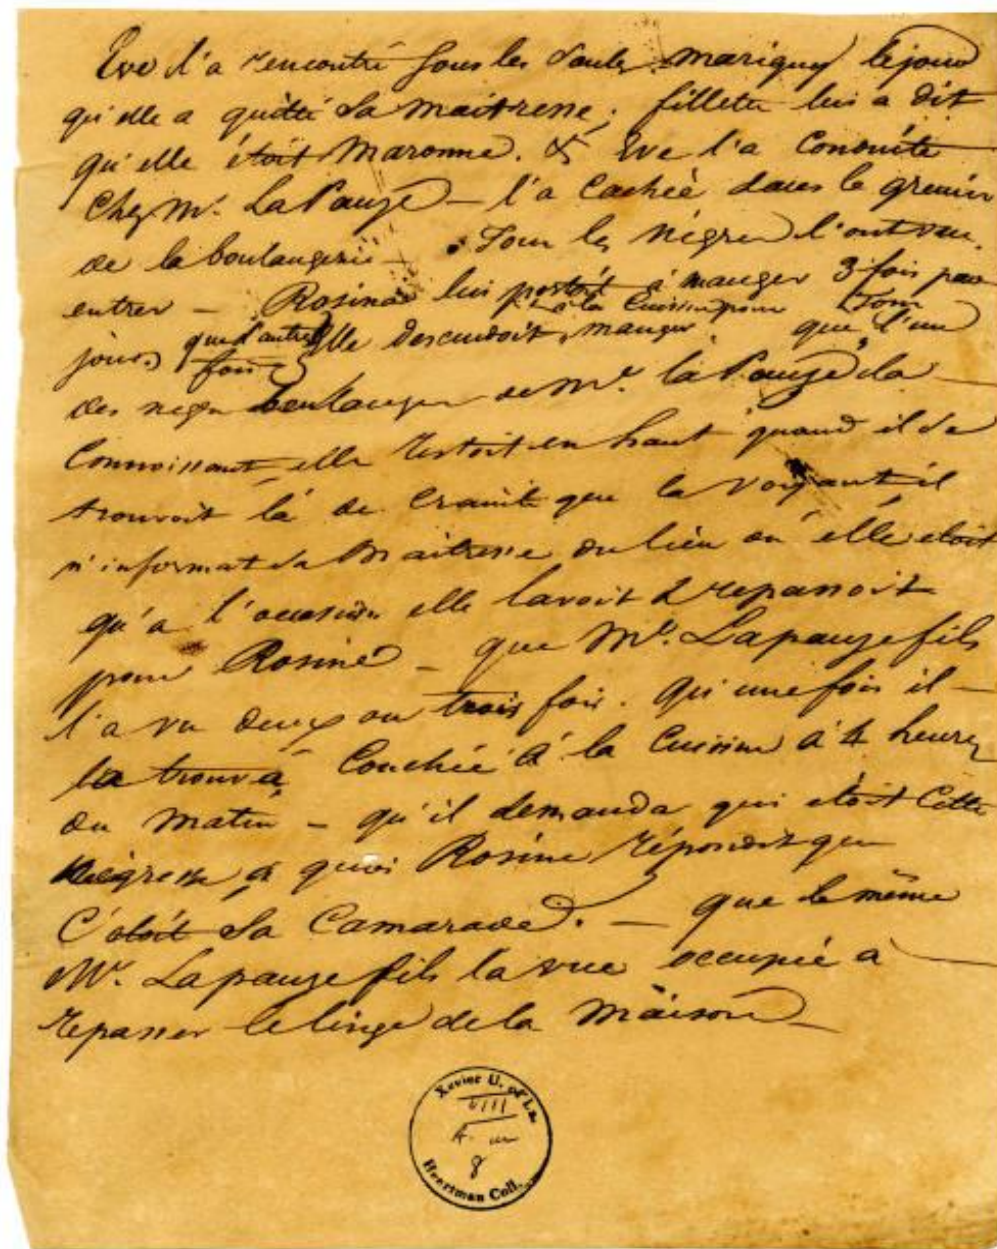 Eve l'a rencontré sous les saules marigny le jour
qu'elle a quitté sa maitresse; fillette lui a dit
qu'elle étoit Maronne. & Eve l'a Conduite
Chez Mr. LaPauze — l'a Cachée dans le grenier
de la boulangerie — Tous les Négres l'ont vue
entrer — Rosine lui portoit à manger 3 fois par
à la Cuisine pour
jour, que d'autre Elle descendoit manger que l'un
fois
des negres boulangers de Mr. la Pauze la
Connoissant elle restoit en haut quand il se
trouvoit là de Crainte que la voyant il
n'informat sa Maitresse du lieu où elle etoit
qu'a l'occasion elle lavoit & repassoit
pour Rosine — que Mr. Lapauze fils
l'a vu deux ou trois fois. qu'une fois il —
la trouva Couchée à la Cuisine à 4 heures
du matin — qu'il demanda qui etoit Cette
Négresse à quoi Rosine répondit que
C'étoit sa Camarade. — que le même
Mr. Lapauze fils la vue occupée à —
repasser le linge de la Maison —
Xavier U. of La.
VIII
8
Heartman Coll.